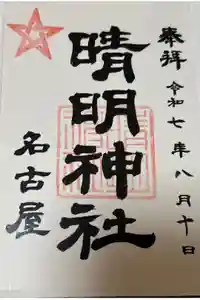 奉拝 令和七年八月十日
晴明神社
名古屋